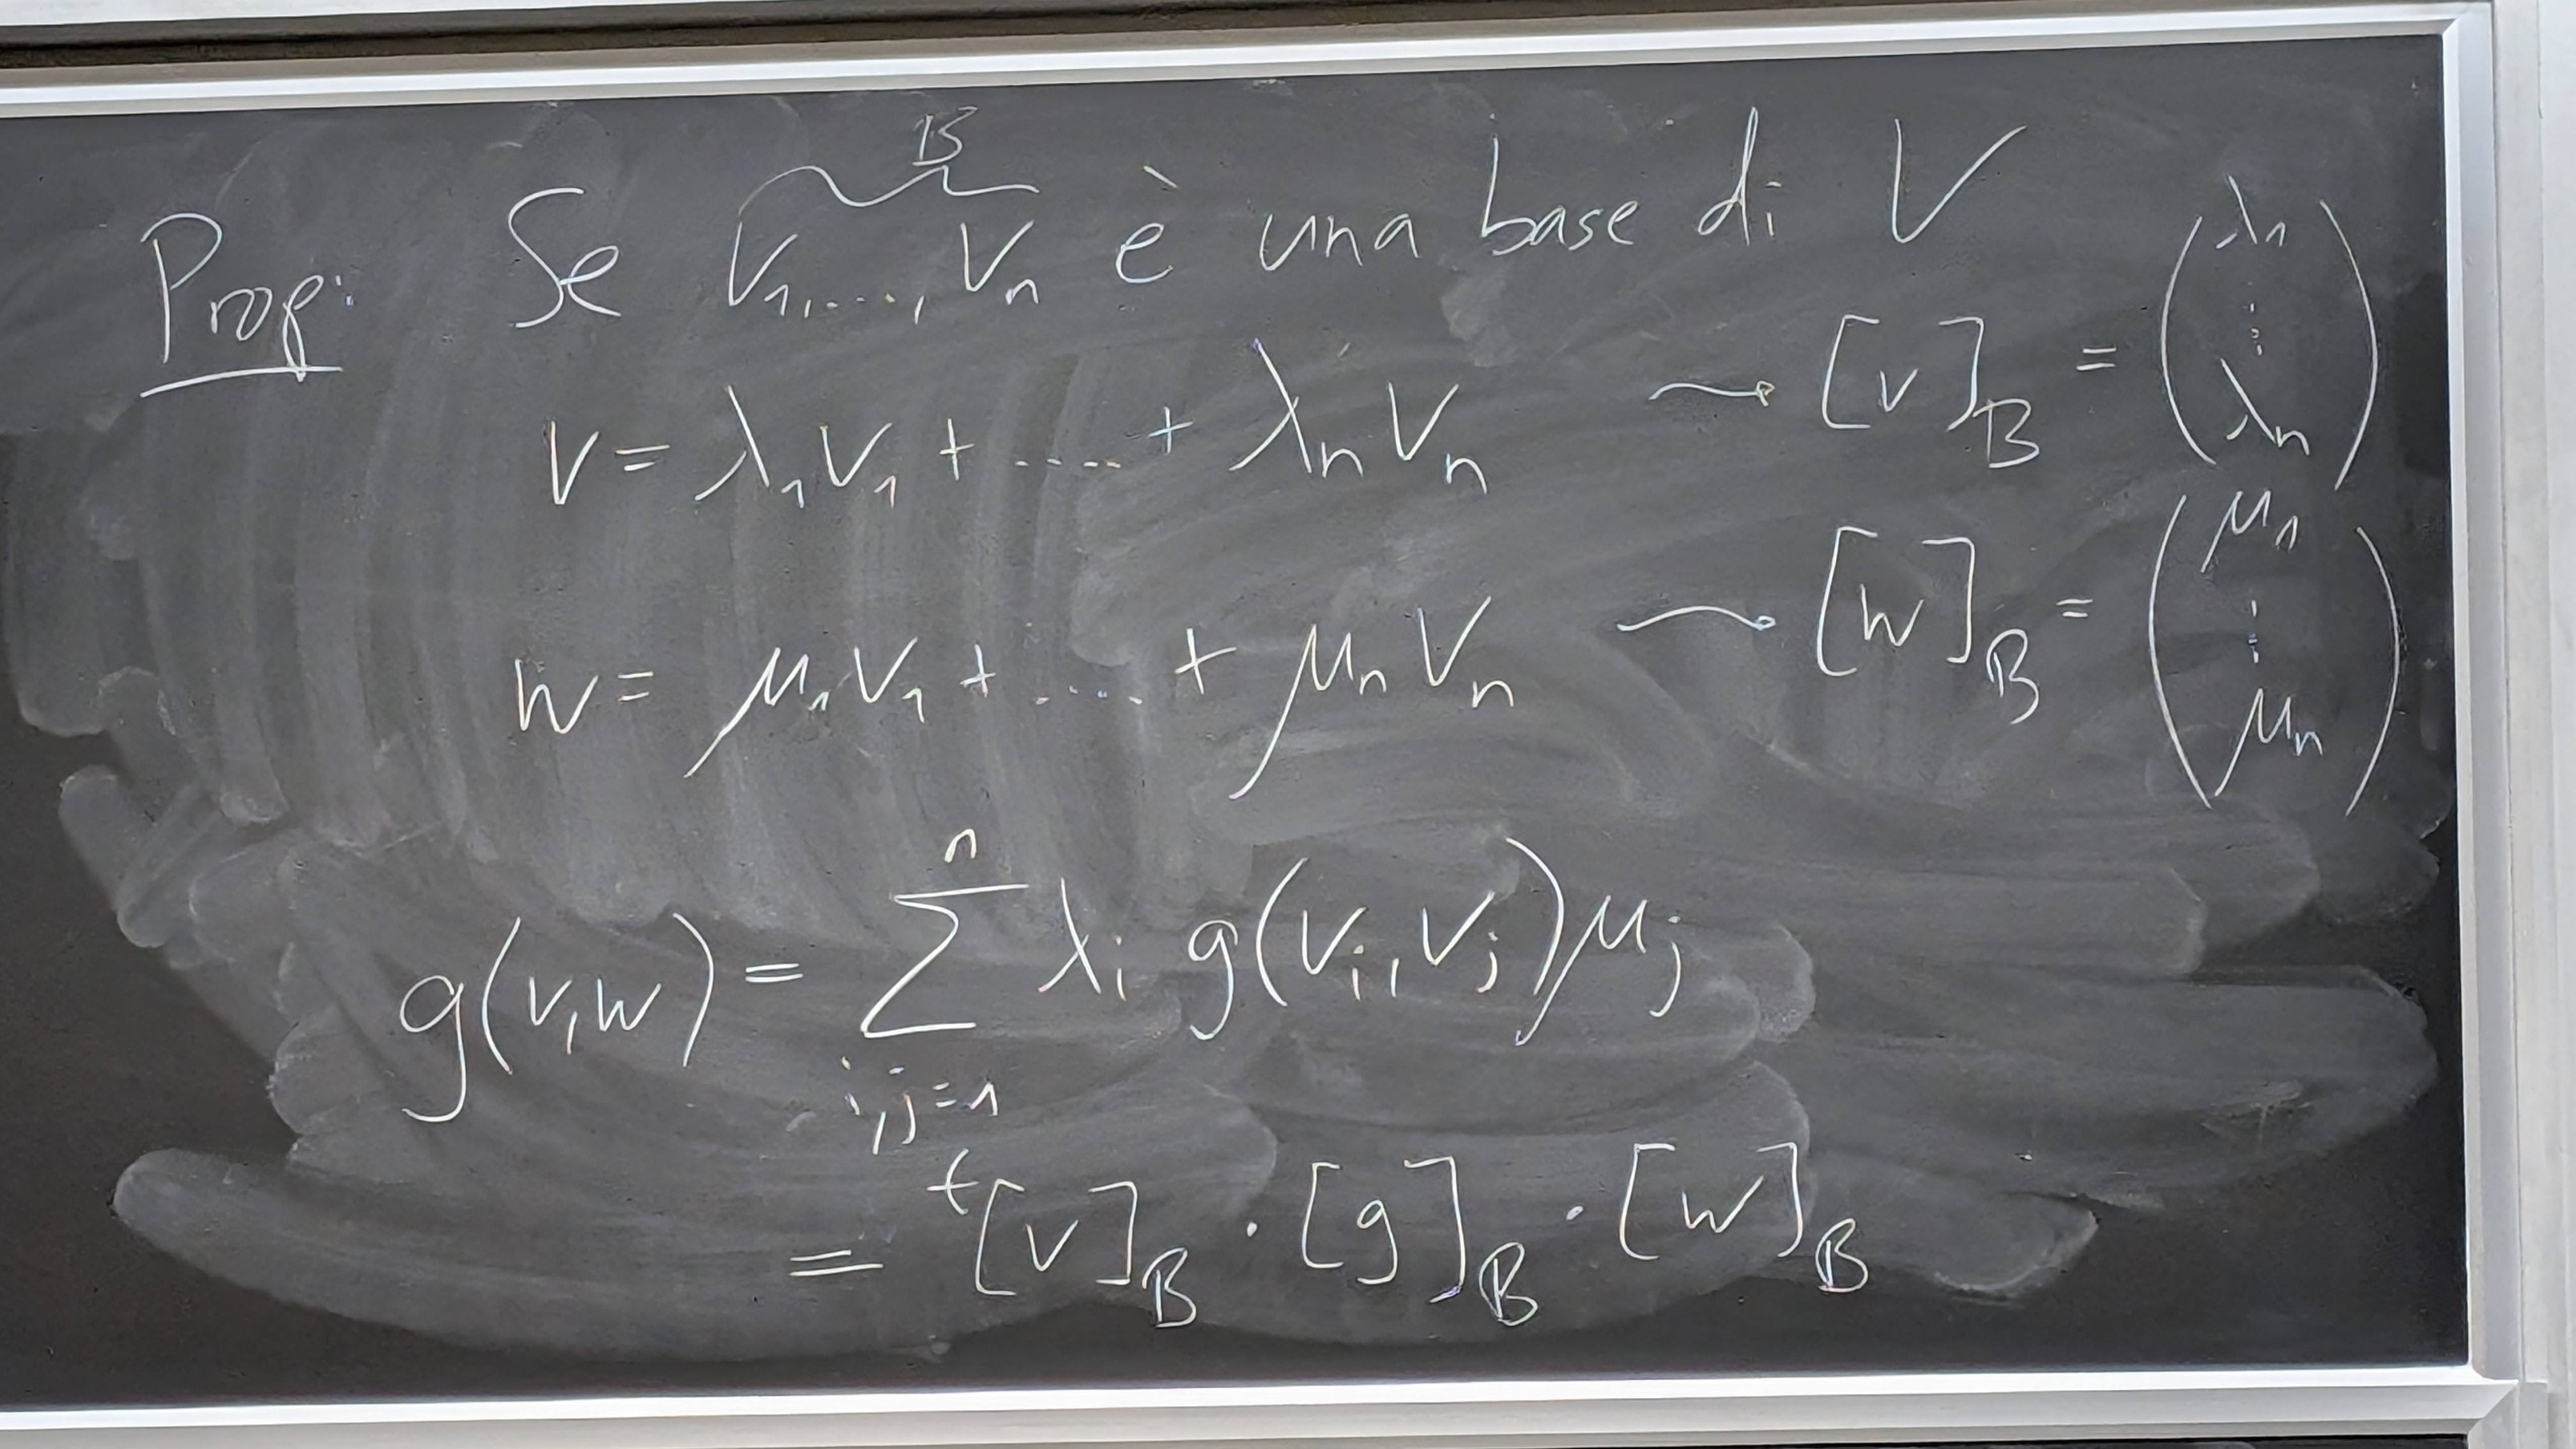 Prop: Se $\overbrace{v_1, \ldots, v_n}^{B}$ è una base di $V$
$v = \lambda_1 v_1 + \ldots + \lambda_n v_n \leadsto [v]_B = \begin{pmatrix} \lambda_1 \\ \vdots \\ \lambda_n \end{pmatrix}$
$w = \mu_1 v_1 + \ldots + \mu_n v_n \leadsto [w]_B = \begin{pmatrix} \mu_1 \\ \vdots \\ \mu_n \end{pmatrix}$
$g(v,w) = \sum_{i,j=1}^{n} \lambda_i \, g(v_i, v_j) \mu_j$
$= {}^t[v]_B \cdot [g]_B \cdot [w]_B$